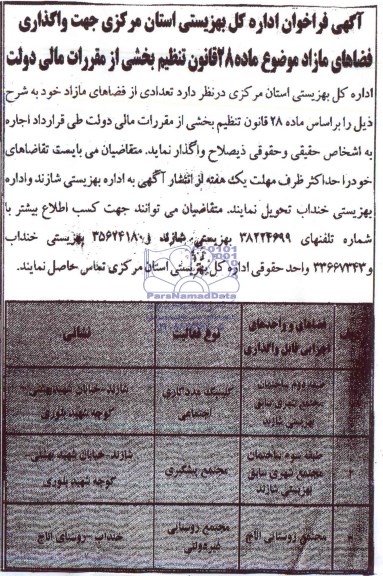 آگهی فراخوان اداره کل بهزیستی استان مرکزی جهت واگذاری
فضاهای مازاد موضوع ماده۲۸قانون تنظیم بخشی از مقررات مالی دولت
اداره کل بهزیستی استان مرکزی درنظر دارد تعدادی از فضاهای مازاد خود به شرح
ذیل را براساس ماده ۲۸ قانون تنظیم بخشی از مقررات مالی دولت طی قرارداد اجاره
به اشخاص حقیقی وحقوقی ذیصلاح واگذار نماید. متقاضیان می بایست تقاضاهای
خودرا حداکثر ظرف مهلت یک هفته از انتشار آگهی به اداره بهزیستی شازند واداره
بهزیستی خنداب تحویل نمایند. متقاضیان می توانند جهت کسب اطلاع بیشتر با
شماره تلفنهای ۳۸۲۲۴۶۹۹ بهزیستی شازند و ۳۵۶۲۴۱۸۰ بهزیستی خنداب
و ۳۳۶۶۷۳۴۳ واحد حقوقی اداره کل بهزیستی استان مرکزی تماس حاصل نمایند.
ParsNamadData
فضاهای و واحدهای
بهزیستی قابل واگذاری
نوع فعالیت
نشانی
طبقه دوم ساختمان
مجتمع شهری سابق
بهزیستی شازند
کلینیک مددکاری
اجتماعی
شازند-خیابان شهید بهشتی-
کوچه شهید بلوری
۲
طبقه سوم ساختمان
مجتمع شهری سابق
بهزیستی شازند
مجتمع پیشگیری
شازند-خیابان شهید بهشتی-
کوچه شهید بلوری
مجتمع روستائی اناج
مجتمع روستائی
غیردولتی
خنداب -روستای اناج